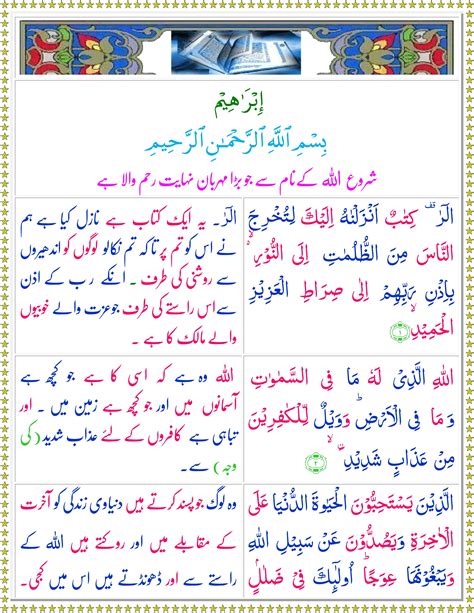 إِبْرَاهِيْم
بِسْمِ اللَّهِ الرَّحْمَٰنِ الرَّحِيمِ
شروع اللہ کے نام سے جو بڑا مہربان نہایت رحم والا ہے
الٓرٰ ۟ كِتٰبٌ اَنْزَلْنٰهُ اِلَيْكَ لِتُخْرِجَ
النَّاسَ مِنَ الظُّلُمٰتِ اِلَى النُّوْرِ ۙ
بِاِذْنِ رَبِّهِمْ اِلٰى صِرَاطِ الْعَزِيْزِ
الْحَمِيْدِ ۙ ﴿۱﴾
الٓرٰ۔ یہ ایک کتاب ہے نازل کیا ہے ہم
نے اس کو تم پر تاکہ تم نکالو لوگوں کو اندھیروں
سے روشنی کی طرف ۔ انکے رب کے اذن
سے اس راستے کی طرف جو عزت والے خوبیوں
والے مالک کا ہے ۔
اللهِ الَّذِىْ لَهٗ مَا فِى السَّمٰوٰتِ
وَمَا فِى الْاَرْضِ ؕ وَوَيْلٌ لِّلْكٰفِرِيْنَ
مِنْ عَذَابٍ شَدِيْدِ ۙ ﴿۲﴾
اللہ وہ ہے کہ اسی کا ہے جو کچھ ہے
آسمانوں میں اور جو کچھ ہے زمین میں ۔ اور
تباہی ہے کافروں کے لئے عذاب شدید ( کی
وجہ ) سے ۔
الَّذِيْنَ يَسْتَحِبُّوْنَ الْحَيٰوةَ الدُّنْيَا عَلَى
الْاٰخِرَةِ وَيَصُدُّوْنَ عَنْ سَبِيْلِ اللهِ
وَيَبْغُوْنَهَا عِوَجًا ؕ اُولٰٓئِكَ فِىْ ضَلٰلٍ
وہ لوگ جو پسند کرتے ہیں دنیاوی زندگی کو آخرت
کے مقابلے میں اور روکتے ہیں اللہ کے
راستے سے اور ڈھونڈتے ہیں اس میں کجی۔